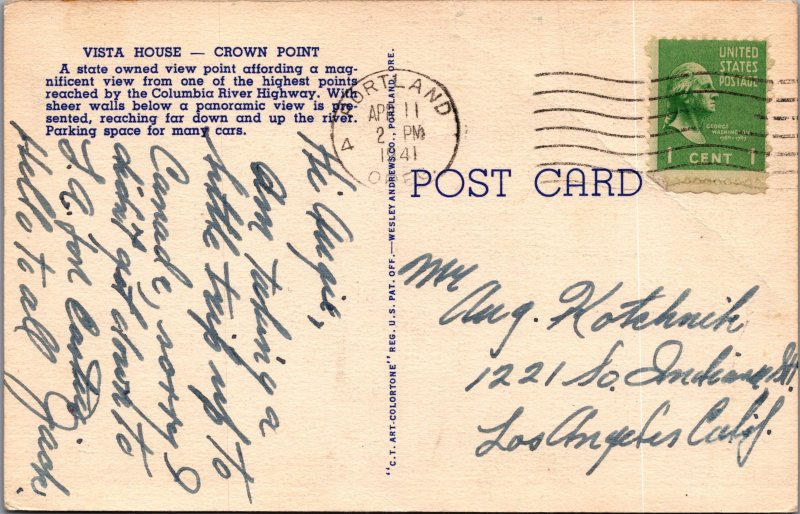 VISTA HOUSE — CROWN POINT
A state owned view point affording a mag-
nificent view from one of the highest points
reached by the Columbia River Highway. With
sheer walls below a panoramic view is pre-
sented, reaching far down and up the river.
Parking space for many cars.
Hi Augie,
Am taking a
little trip up to
Canada, sorry I
didn't get down to
L.A. for Easter
Hello to all
Jack.
"C.T. ART-COLORTONE" REG. U.S. PAT. OFF.—WESLEY ANDREWS CO., PORTLAND, ORE.
PORTLAND
APR 11
2 PM
1941
4
UNITED
STATES
POSTAGE
GEORGE
WASHINGTON
1789-1797
1 CENT 1
POST CARD
Mr
Aug. Kotchnik
1221 So. Indiana St.
Los Angeles Calif.